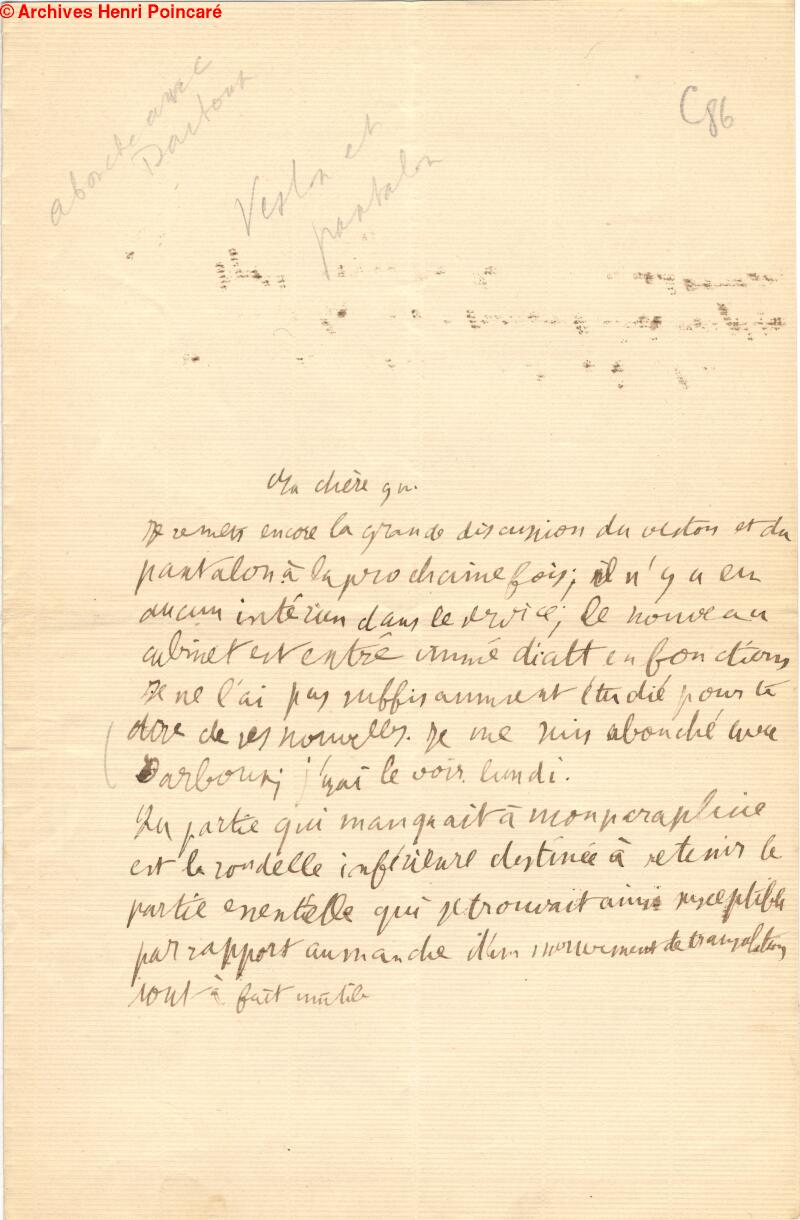 © Archives Henri Poincaré
C86
abouché avec
Darboux
Veston et
pantalon
Ma chère
Je remets encore la grande discussion du veston et du
pantalon à la prochaine fois; il n'y a eu
aucun intérim dans le service; le nouveau
cabinet est entré immédiatt en fonctions
Je ne l'ai pas suffisamment étudié pour te
dire de ses nouvelles. Je me suis abouché avec
Darboux; j'irai le voir lundi.
La partie qui manquait à mon parapluie
est la rondelle inférieure destinée à retenir la
partie essentielle qui se trouvait ainsi susceptible
par rapport au manche d'un mouvement de translation
tout à fait inutile